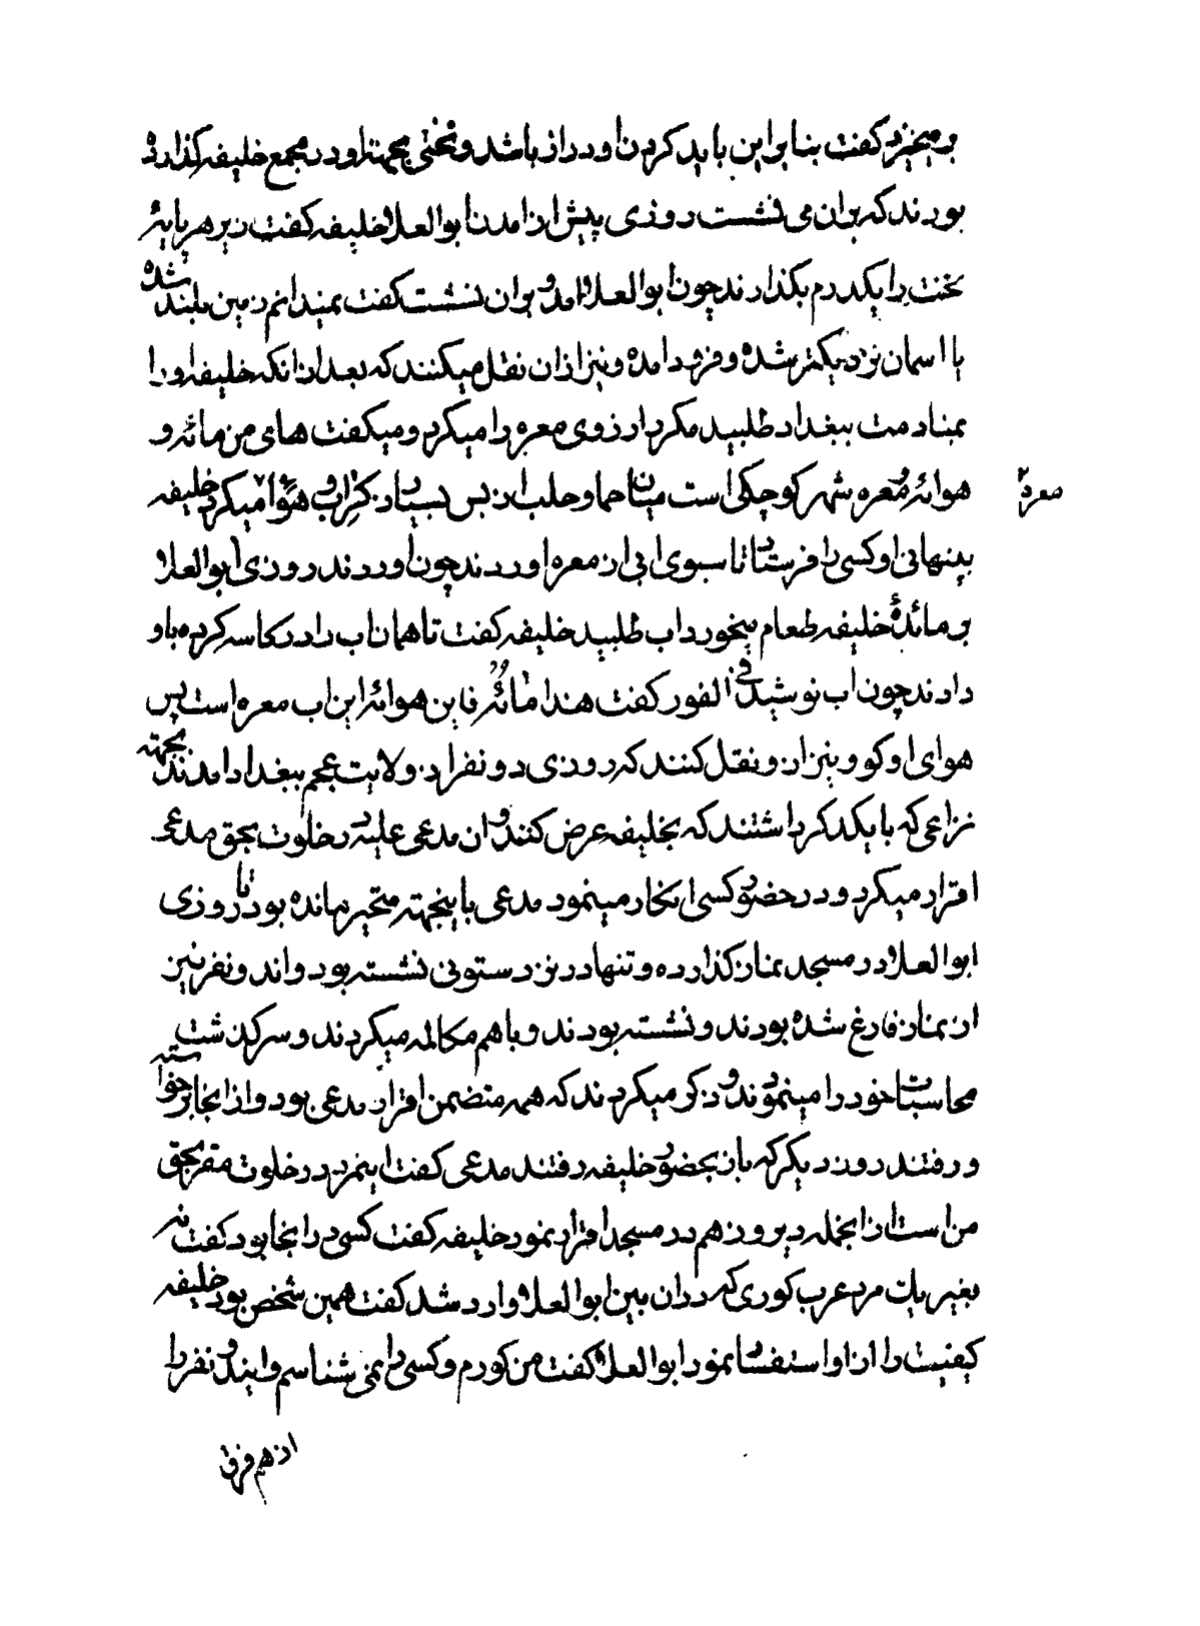 برمیخیزد کفت بنابراین باید کردن او دراز باشد و تختی بجهته او در مجمع خلیفه کذارده
بودند که بران می نشست روزی پیش از امدن ابو العلا خلیفه کفت زیر هر پایهٔ
تخت را یکدرم بکذارند چون ابو العلا امد و بران نشست کفت نمیدانم زمین بلند شده
یا اسمان نزدیکتر شده و فرود امده و نیز ازان نقل میکنند که بعد از انکه خلیفه او را
بمنادمت ببغداد طلبید مکرر ارزوی معره را میکرد و میکفت های من مائه و
هوائه معره شهر کوچکی است میان حما و حلب از بس بسیار ذکر اب و هوا میکرد خلیفه
معره
بپنهانی او کسی را فرستاد تا سبوی ابی از معره اوردند چون اوردند روزی ابو العلا
بر مائدهٔ خلیفه طعام میخورد اب طلبید خلیفه کفت تا همان اب را در کاسه کرده باو
دادند چون اب نوشید فی الفور کفت هذا مائه فاین هوائه این اب معره است پس
هوای او کو و نیز از و نقل کنند که روزی دو نفر از ولایت عجم ببغداد امدند بجهته
نزاعی که با یکدکر داشتند که بخلیفه عرض کنند و ان مدعی علیه در خلوت بحق مدعی
اقرار میکرد و در حضور کسی انکار مینمود مدعی باینجهته متحیر مانده بود تا روزی
ابو العلا در مسجد نماز کذارده و تنها در نزد ستونی نشسته بود و اند و نفر نیز
از نماز فارغ شده بودند و نشسته بودند و با هم مکالمه میکردند و سرکذشت
محاسبات خود را مینمودند و ذکر میکردند که همه متضمن اقرار مدعی بود و از انجا برخواسته
و رفتند روز دیکر که باز بحضور خلیفه رفتند مدعی کفت اینمرد در خلوت مقر بحق
من است از انجمله دیروز هم در مسجد اقرار نمود خلیفه کفت کسی در انجا بود کفت نه
بغیر یک مرد عرب کوری که دران بین ابو العلا وارد شد کفت همین شخص بود خلیفه
کیفیت را از او استفسار نمود ابو العلا کفت من کورم و کسی را نمی شناسم و ایند و نفر را
از هم فرق